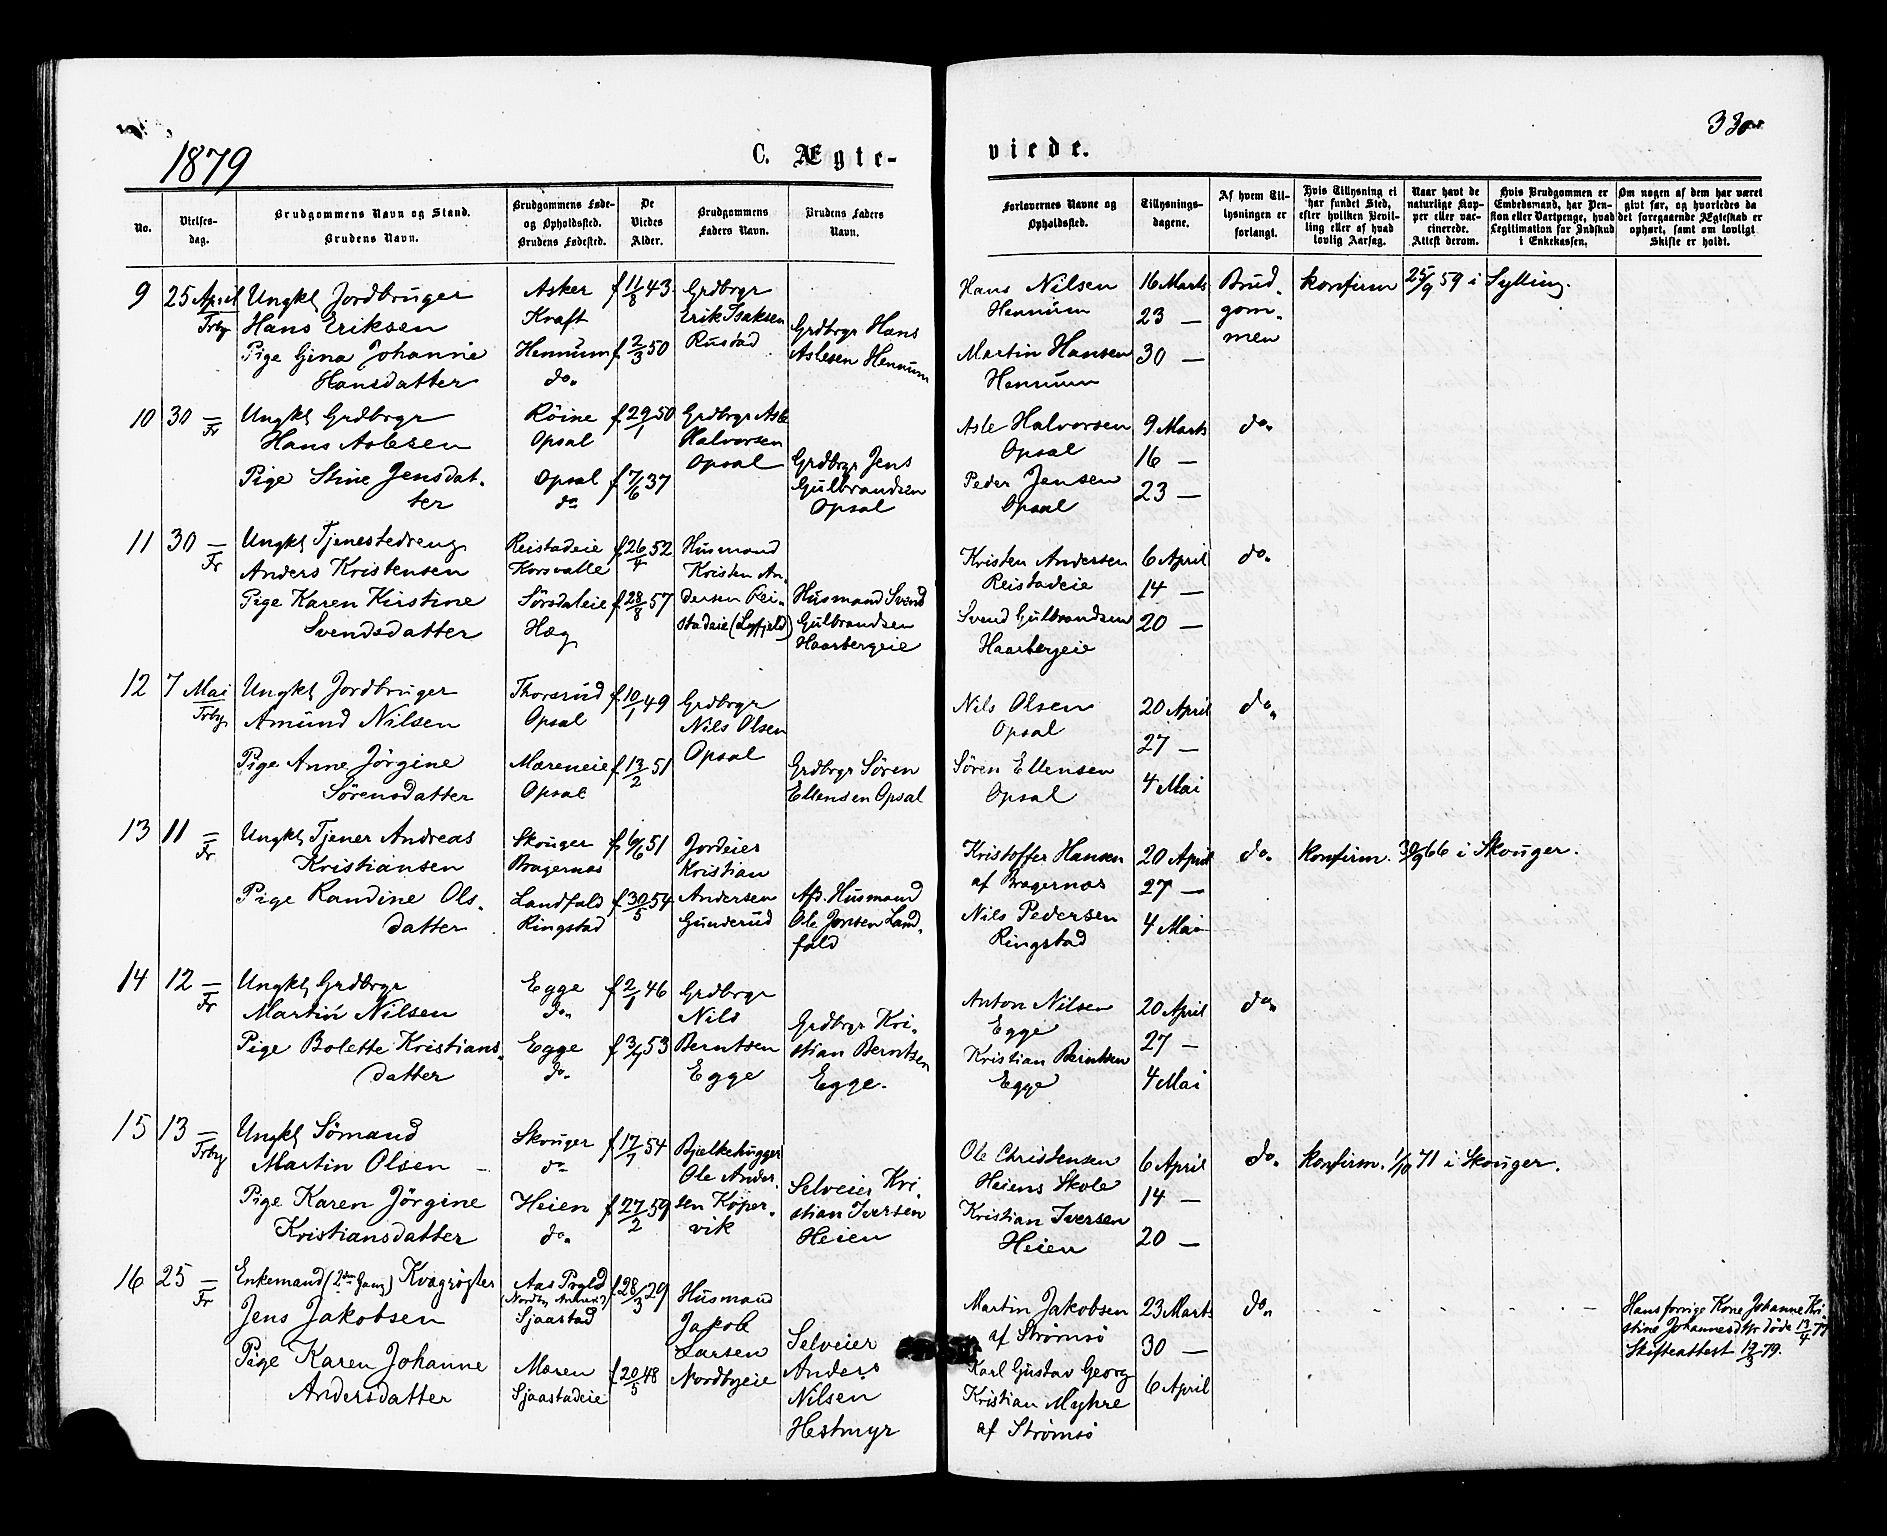 1879
C. Ægte-
viede.
No.
Vielses-
dag.
Brudgommens Navn og Stand.
Brudens Navn.
Brudgommens Føde-
og Opholdssted.
Brudens Fødested.
De
Viedes
Alder.
Brudgommens
Faders Navn.
Brudens Faders
Navn.
Forlovernes Navne og
Opholdssted.
Tillysnings-
dagene.
Af hvem Til-
lysningen er
forlangt.
Hvis Tillysning ei
har fundet Sted,
efter hvilken Bevil-
ling eller af hvad
lovlig Aarsag.
Naar havt de
naturlige Kop-
per eller vac-
cinerede.
Attest derom.
Hvis Brudgommen er
Embedsmand, har Pen-
sion eller Vartpenge, hvad
Legitimation for Indskud
i Enkekassen.
Om nogen af dem har været
gift før, og hvorledes da
det foregaaende Ægteskab er
ophørt, samt om lovligt
Skifte er holdt.
9
25 April
Trby
Ungkl Jordbruger
Hans Eriksen
Pige Gina Johanne
Hansdatter
Asker
Kraft
Hennum
do.
f. 11/8 43
f. 2/3 50
Grdbrgr
Erik Isaksen
Rustad
Grdbrgr Hans
Aslesen Hennum
Hans Nilsen
Hennum
Martin Hansen
Hennum
16 Marts
23 —
30 —
Brud-
gom-
men
konfirm 25/9 59 i Sylling.
10
30 —
Fr
Ungkl Grdbrgr
Hans Aslesen
Pige Stine Jensdat-
ter
Röine
Opsal
Opsal
do
f. 29/1 50
f. 7/6 37
Grdbrgr Asle
Halvorsen
Opsal
Grdbrgr Jens
Gulbrandsen
Opsal
Asle Halvorsen
Opsal
Peder Jensen
Opsal
9 Marts
16 —
23 —
do.
11
30 —
Fr
Ungkl Tjenestedreng
Anders Kristensen
Pige Karen Kirstine
Svendsdatter
Reistadeie
Korsvalle
Sørsdaleie
Hæg
f. 26/4 52
f. 28/8 57
Husmand
Kristen An-
dersen Rei-
stadeie (Lyfjeld)
Husmand Svend
Gulbrandsen
Haarbergeie
Kristen Andersen
Reistadeie
Svend Gulbrandsen
Haarbergeie
6 April
14 —
20 —
do.
12
7 Mai
Trby
Ungkl Jordbruger
Amund Nilsen
Pige Anne Jörgine
Sörensdatter
Thorsrud
Opsal
Mæreneie
Opsal
f. 10/1 49
f. 13/2 51
Grdbrgr
Nils Olsen
Opsal
Grdbrgr Sören
Ellensen Opsal
Nils Olsen
Opsal
Sören Ellensen
Opsal
20 April
27 —
4 Mai
do.
13
11 —
Fr
Ungkl Tjener Andreas
Kristiansen
Pige Randine Ols-
datter
Skouger
Bragernæs
Landfald
Ringstad
f. 6/6 51
f. 30/5 54
Jordeier
Kristian
Andersen
Gunderud
Afd. Husmand
Ole Jonsen Land-
fald
Kristoffer Hansen
af Bragernæs
Nils Pedersen
Ringstad
20 April
27 —
4 Mai
do.
konfirm. 30/9 66 i Skouger.
14
12 —
Fr
Ungkl Grdbrgr
Martin Nilsen
Pige Bolette Kristians-
datter
Egge
do.
Egge
do.
f. 2/1 46
f. 3/1 53
Grdbrgr
Nils
Berntsen
Egge
Grdbrgr Kri-
stian Berntsen
Egge.
Anton Nilsen
Egge
Kristian Berntsen
Egge
20 April
27 —
4 Mai
do.
15
13 —
Trby
Ungkl Sömand
Martin Olsen —
Pige Karen Jörgine
Kristiansdatter
Skouger
do
Heien
do.
f. 17/1 54
f. 27/2 59
Bjelkehugger
Ole Ander-
sen Köper-
vik
Selveier Kri-
stian Iversen
Heien
Ole Christensen
Heiens Skole
Kristian Iversen
Heien
6 April
14 —
20 —
do.
konfirm. 1/10 71 i Skouger.
16
25 —
Fr
Enkemand (2den Gang) Kvægrøgter
Jens Jakobsen
Pige Karen Johanne
Andersdatter
Aas Prgld
Sjaastad
Mæren
Sjaastadeie
f. 28/3 29
f. 20/5 48
Husmand
Jakob
Larsen
Nordbyeie
Selveier
Anders
Nilsen
Hestmyr
Martin Jakobsen
af Strømsö
Karl Gustav Georg
Kristian Myhre
af Strømsö
23 Marts
30 —
6 April
do.
Hans forrige Kone Johanne Kri-
stine Johannesdtr døde 13/4 77
Skifteattest 12/3 79.